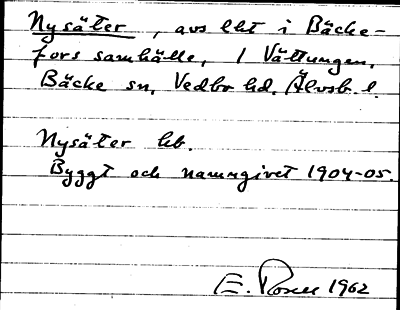 Nysäter, avs lht i Bäcke-
fors samhälle, 1 Vättungen,
Bäcke sn, Vedbo hd. Älvsb. l.
Nysäter hb.
Byggt och namngivet 1904-05.
E. Rosell 1962